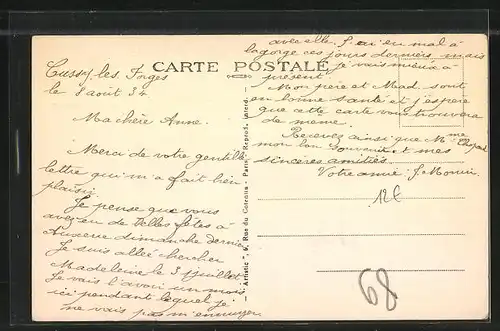 Cussy-les Forges
le 8 août 34
CARTE POSTALE
Ma chère Anne.
Merci de votre gentille
lettre qui m'a fait bien
plaisir.
Je pense que vous
avez eu de belles fêtes à
Auxerre dimanche dernier
Je suis allée chercher
Madeleine le 3 juillet
Je vais l'avoir un mois
ici pendant lequel je
ne vais pas m'ennuyer
avec elle. J'ai eu mal à
la gorge ces jours derniers mais
je vais mieux à
présent.
Mon père et Mad. sont
en bonne santé et j'espère
que cette carte vous trouvera
de même.
Recevez ainsi que Mme
mon bon souvenir et mes
sincères amitiés.
Votre amie J.
"Artistic", 6, Rue du Coteau - Paris Reprod. Interd.
12€
68